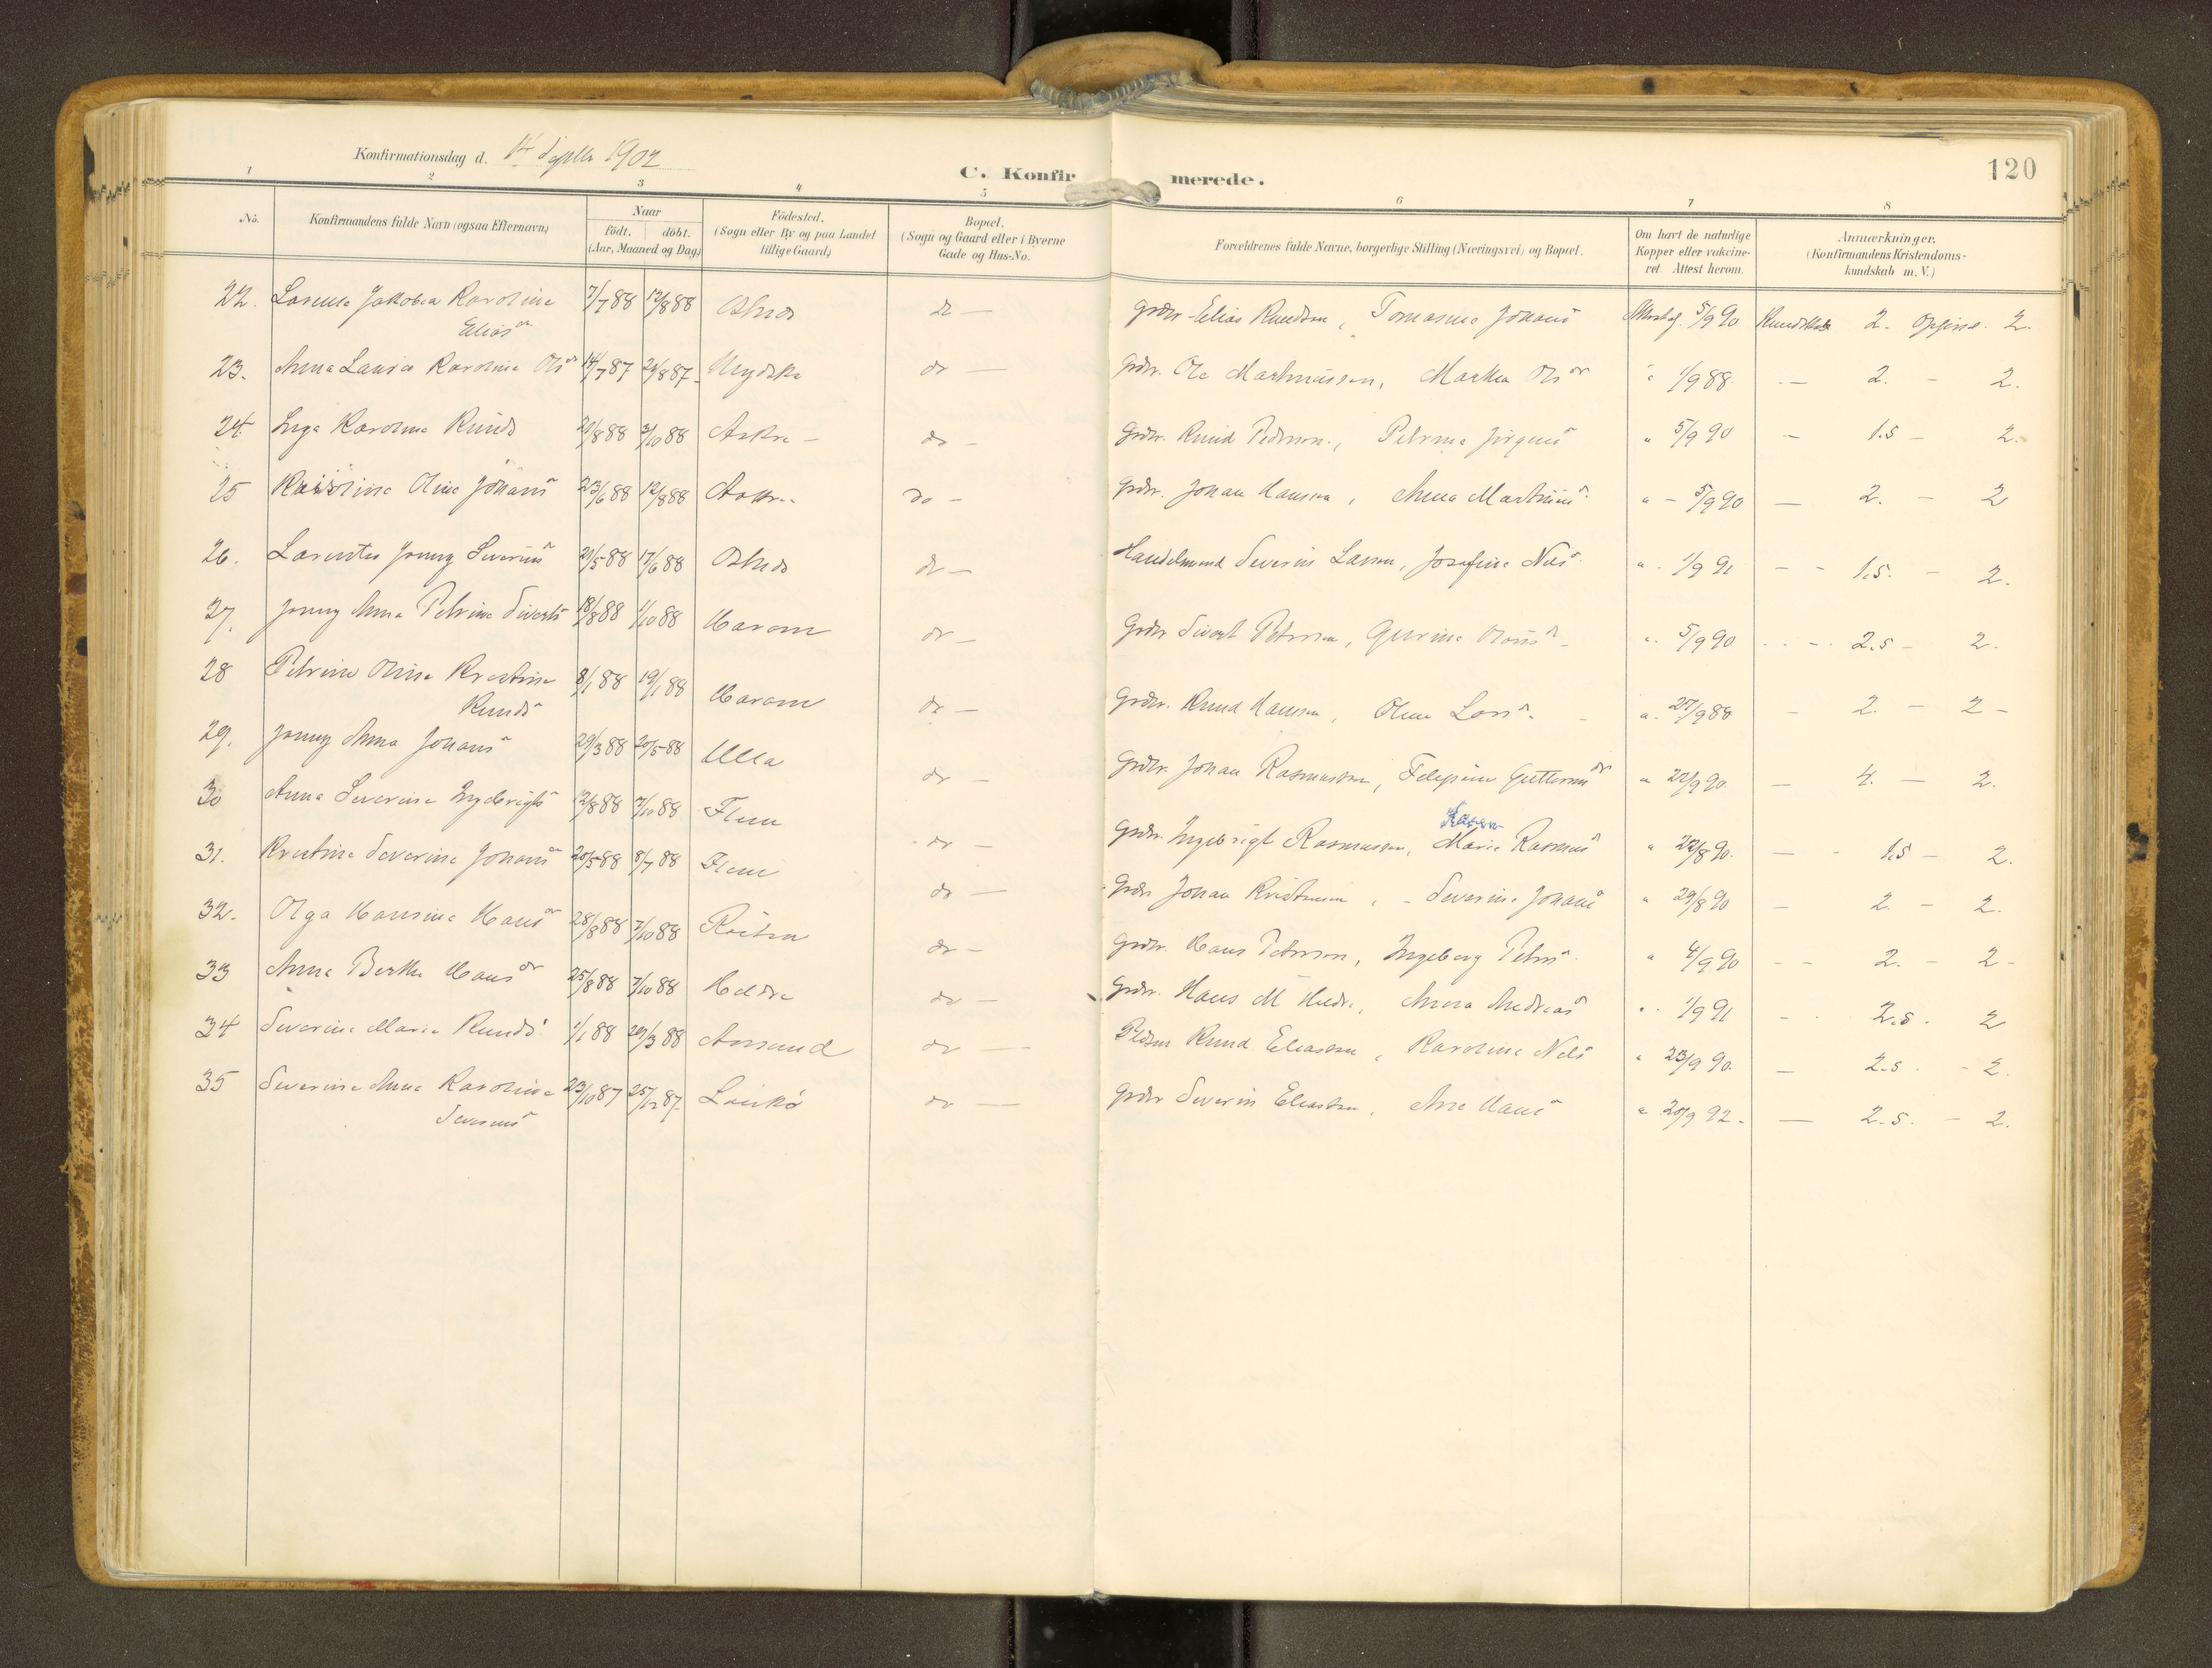 Konfirmationsdag d. 14 Septbr 1902
C. Konfirmerede.
120
1 2 3 4 5 6 7 8
No. Konfirmandens fulde Navn (ogsaa Efternavn) Naar födt. döbt. (Aar, Maaned og Dag) Födested. (Sogn eller By og paa Landet tillige Gaard) Bopæl. (Sogn og Gaard eller i Byerne Gade og Hus-No. Forældrenes fulde Navne, borgerlige Stilling (Næringsvei) og Bopæl. Om havt de naturlige Kopper eller vakcineret. Attest herom. Anmærkninger. (Konfirmandens Kristendomskundskab m. V.)
22. Karoline Eliasdr 7/7 88 12/8 88 do — Grdbr. Elias Knudsen, Tomasine Johans 5/9 90 Kundskab 2. Opførsel 2.
23. Anna Laura Karoline Olsdr 14/7 87 21/8 87 do — Grdbr. Ole Martinussen, Martha Olsdr " 1/9 88. — 2. — 2.
24. Inga Karoline Knuds 21/8 88 3/10 88 Askra — do — Grdbr. Knud Pedersen, Petrine Jørgens " 5/9 90 — 1.5 — 2.
25 Oline Johans 23/6 88 12/8 88 do — Grdbr. Johan Hansen, Anna Martinus " — 5/9 90 — 2. — 2
26. Jenny Severins 21/5 88 17/6 88 do — Handelsmand Severin Larsen, Josefine Nils " 1/9 91 — 1.5. — 2.
27. Jenny Anna Petrine Siverts 18/8 88 1/10 88 Haram do — Grdbr Sivert Petersen, Gurine " 5/9 90 — 2.5 — 2.
28 Petrine Olina Kristine Knuds 8/1 88 19/1 88 Haram do — Grdbr. Knud Hansen, Oline Lars " 27/9 88 — 2. — 2 —
29. Jenny Anna Johans 29/3 88 20/5 88 Ulla do — Grdbr. Johan Rasmussen, Guttorms " 22/9 90. — 4. — 2.
30 Anna Severine Ingebrigts 12/8 88 7/10 88 Flem do — Grdbr. Ingebrigt Rasmussen, Karen Marie Rasmus " 22/8 90. — 1.5 — 2.
31. Kristine Severine Johans 20/5 88 8/7 88 Flem do — Grdbr Johan Kristensen, Severine Johans " 29/8 90 — 2. — 2.
32. Olga Hansine Hansdr 28/8 88 7/10 88 do — Grdbr. Hans Petersen, Ingeborg Peters " 4/9 90 — 2. — 2 —
33 Anna Berthe Hansdr 25/8 88 7/10 88 Hildre do — Grdbr. Hans M Hildre, Anna Andreas " 1/9 91 — 2.5. 2
34 Severine Marie Knuds 1/1 88 29/3 88 do — Knud Eliassen, Karoline Nils " 23/9 90. — 2.5. — 2.
35 Severine Anna Karoline Severins 23/10 87 25/12 87. do — Grdbr Severin Eliassen, Ane Hans " 20/9 92. — 2.5. — 2.